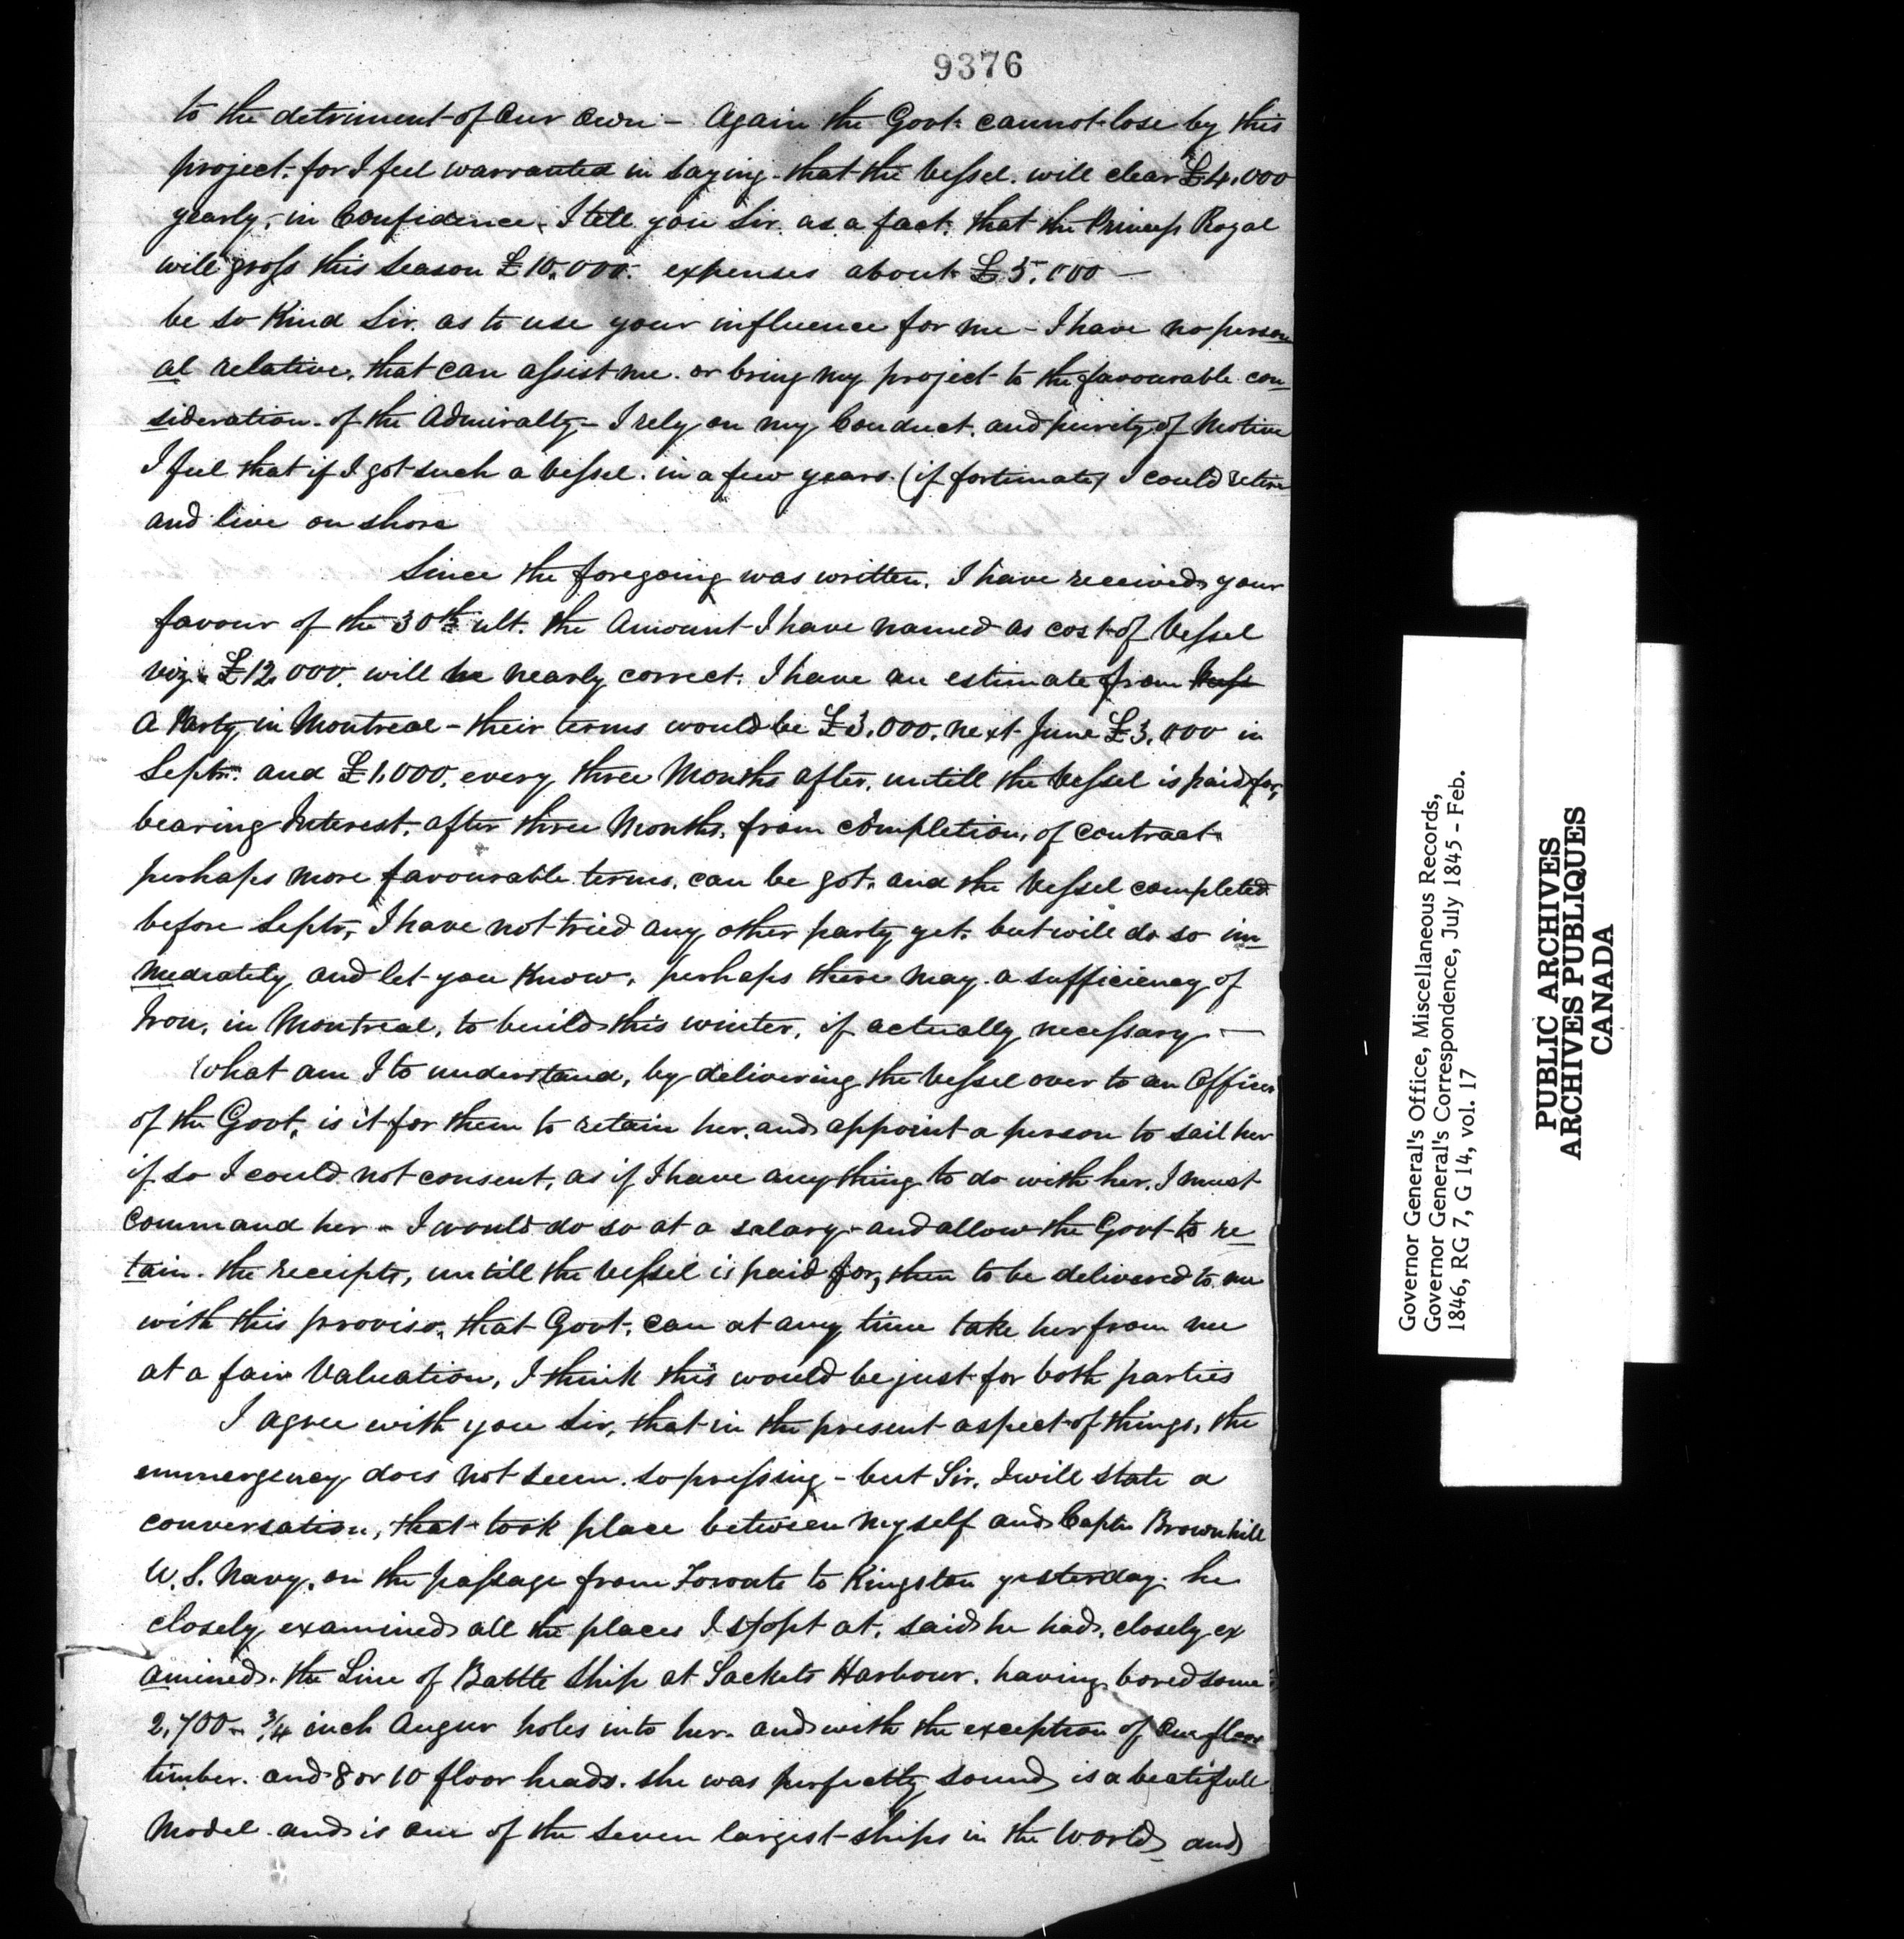 9376
to the detriment of our own - Again the Govt. cannot lose by this
project. for I feel warranted in saying. that the Vessel. will clear £4,000
yearly, in Confidence. I tell you Sir. as a fact. that the Princess Royal
will gross this season £10,000. expenses about £5,000 —
be so Kind Sir. as to use your influence for me - I have no person
al relative. that can assist me. or bring my project to the favourable con-
sideration. of the Admiralty - I rely on my Conduct. and purity of Motive
I feel that if I got such a Vessel. in a few years. (if fortunate) I could retire
and live on shore
Since the foregoing was written. I have received your
favour of the 30th ult. the Amount I have named as cost of Vessel
viz. £12,000. will be nearly correct. I have an estimate from
A Party in Montreal - their terms would be £3,000. next June £3,000 in
Septr. and £1,000. every three Months after. untill the Vessel is paid for,
bearing Interest. after three Months. from completion, of contract.
perhaps more favourable terms. can be got. and the Vessel completed
before Septr, I have not tried any other party yet. but will do so im-
mediately and let you Know. perhaps there may a sufficiency of
Iron, in Montreal, to build this winter, if actually necessary —
What am I to understand, by delivering the Vessel over to an Officer
of the Govt, is it for them to retain her. and appoint a person to sail her
if so I could not consent, as if I have anything to do with her. I must
command her - I would do so at a salary - and allow the Govt to re-
tain. the receipts, untill the Vessel is paid for, then to be delivered to me
with this proviso, that Govt. can at any time take her from me
at a fair Valuation, I think this would be just for both parties
I agree with you Sir, that in the present aspect of things, the
emmergency does not seem. so pressing - but Sir, I will state a
conversation, that took place between myself and Captn Brownhill
U.S. Navy. on the passage from Toronto to Kingston yesterday. he
closely examined all the places I stopt at. said he had. closely ex
amined. the Line of Battle Ship at Sackets Harbour. having bored some
2,700 - 3/4 inch Augur holes into her. and with the exception of One floor
timber. and 8 or 10 floor heads. she was perfectly sound is a beatifull
Model and is one of the seven largest ships in the World, and
Governor General's Office, Miscellaneous Records,
Governor General's Correspondence, July 1845 - Feb.
1846, RG 7, G 14, vol. 17
PUBLIC ARCHIVES
ARCHIVES PUBLIQUES
CANADA